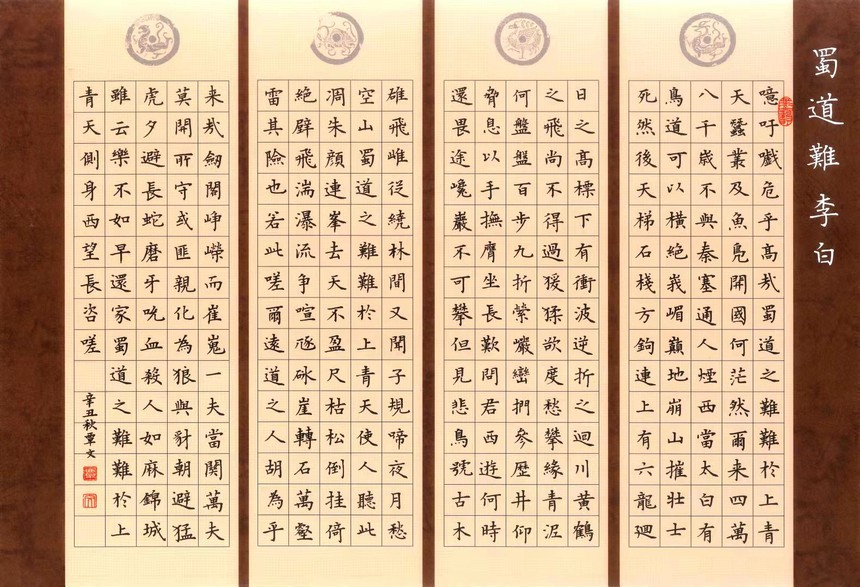 蜀道難李白
噫吁戲危乎高哉蜀道之難難於上青
天蠶叢及魚鳧開國何茫然爾来四萬
八千歲不與秦塞通人煙西當太白有
鳥道可以橫絕峩嵋巔地崩山摧壯士
死然後天梯石棧方鉤連上有六龍廻
日之高標下有衝波逆折之迴川黃鶴
之飛尚不得過猨猱欲度愁攀緣青泥
何盤盤百步九折縈巖巒捫參歷井仰
脅息以手撫膺坐長歎問君西遊何時
還畏途巉巖不可攀但見悲鳥號古木
雄飛雌從繞林間又聞子規啼夜月愁
空山蜀道之難難於上青天使人聽此
凋朱顏連峯去天不盈尺枯松倒挂倚
絕壁飛湍瀑流争喧豗砯崖轉石萬壑
雷其險也若此嗟爾遠道之人胡為乎
来哉劒閣崢嶸而崔嵬一夫當關萬夫
莫開所守或匪親化為狼與豺朝避猛
虎夕避長蛇磨牙吮血殺人如麻錦城
雖云樂不如早還家蜀道之難難於上
青天側身西望長咨嗟
辛丑秋覃文